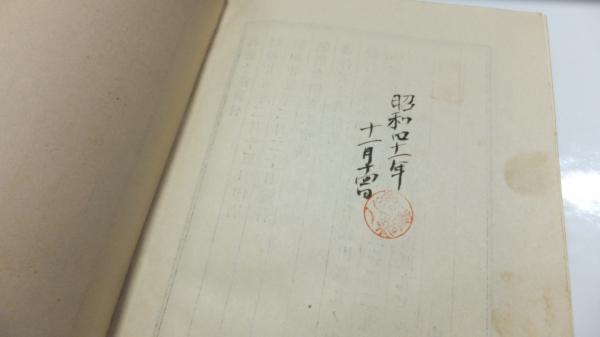 昭和四十一年
十一月十四日